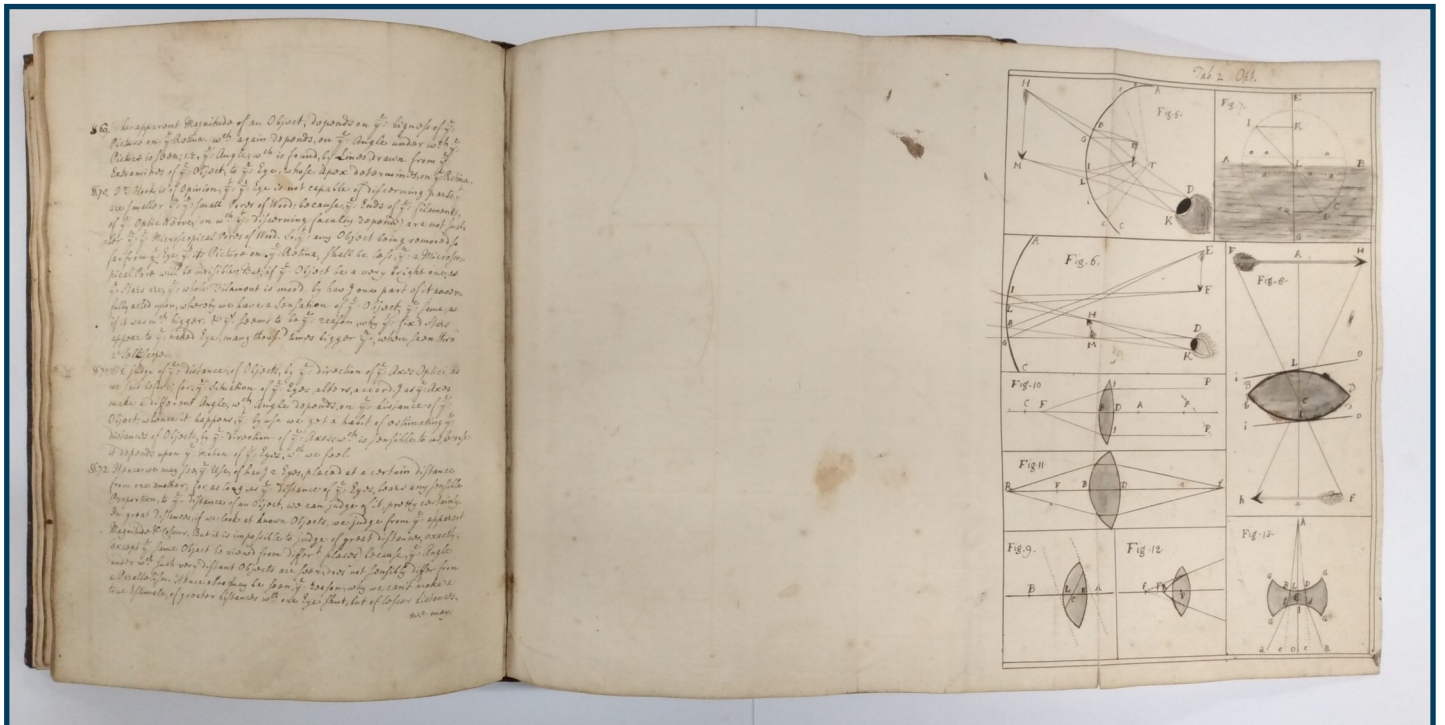 869. The apparent Magnitude of an Object, depends on yͤ: bigness of yͤ:
Picture on yͤ: Retina. wᶜʰ: again depends, on yͤ: Angle under wᶜʰ: yͤ:
Picture is seen; i.e. yͤ: Angle, wᶜʰ: is found, by Lines drawn from yͤ:
Extremities of yͤ: Object, to yͤ: Eye, whose Apex determines, on yͤ: Retina.
870. Dʳ: Hook, is of Opinion, yᵗ: yͤ: Eye is not capable of discerning parts,
are smaller yⁿ: yͤ: small Pores of Wood; because, yͤ: Ends of yͤ: Filaments,
of yͤ: Optic Nerve, on wᶜʰ: yͤ: discerning faculty depends; are not
yⁿ: yͤ: Microscopical Pores of Wood. any Object being removed so
far from yͤ: Eye, yᵗ: its Picture on yͤ: Retina, shall be less, yⁿ: a Microsco-
pical Pore will be invisible. But if yͤ: Object be a very bright one, as
yͤ: Stars are, yͤ: whole Filament is mov'd by hav'g one part of it power-
fully acted upon, whereby we have a Sensation of yͤ: Object, yͤ: same, as
if it was much bigger. & yˢ: seems to be yͤ: reason, why yͤ: fix'd Stars
appear to yͤ: naked Eye, many thousᵈ: times bigger yⁿ:, when seen thro'
a Telescope.
871. We judge of yͤ: distances of Objects, by yͤ: direction of yͤ: Axes Optici as
we said before; for, yͤ: Situation of yͤ: Eyes, alters, accord'g as yͤ: Axes
make a different Angle, wᶜʰ: Angle depends, on yͤ: distance of yͤ:
Object, whence it happens, yᵗ: by use we get a habit of estimating yͤ:
distances of Objects, by yͤ: direction of yͤ: Axes; wᶜʰ: is sensible to us, because
it depends upon yͤ: motion of yͤ: Eyes, wᶜʰ: we feel.
872. Hence we may see, yͤ: Use, of hav'g 2 Eyes, placed at a certain distance
from one another; for as long, as yͤ: distance of yͤ: Eyes, bears any sensible
Proportion, to yͤ: distance of an Object, we can judge of it, pretty certainly.
In great distances, if we look at known Objects, we judge from yͤ: apparent
Magnitude & Colour. But it is impossible to judge of great distances, exactly,
except yͤ: same Object be viewed from differᵗ: places because, yͤ: Angle
under wᶜʰ: such very distant Objects are seen, does not sensibly differ from
a Parallelism. Hence also may be seen, yͤ: Reason, why we can't make a
true Estimate, of greater distances wᵗʰ: one Eye shut, but of lesser distances,
we may.
Tab. 2 Opt.
Fig. 5.
H
A
B
G
M
I
L
T
D
K
C
Fig. 7.
E
I
K
A
L
B
C
G
Fig. 6.
A
E
I
F
L
H
B
D
G
M
K
C
Fig. 8.
F
A
H
L
o
i
B
D
b
C
I
i
o
h
a
f
Fig. 10
I
P
C
F
B
D
A
I
P
Fig. 11
R
F
B
D
Fig. 9.
B
L
C
A
Fig. 12
Fig. 13.
A
a
B
L
D
a
E
a
I
a
a
e
D
e
B